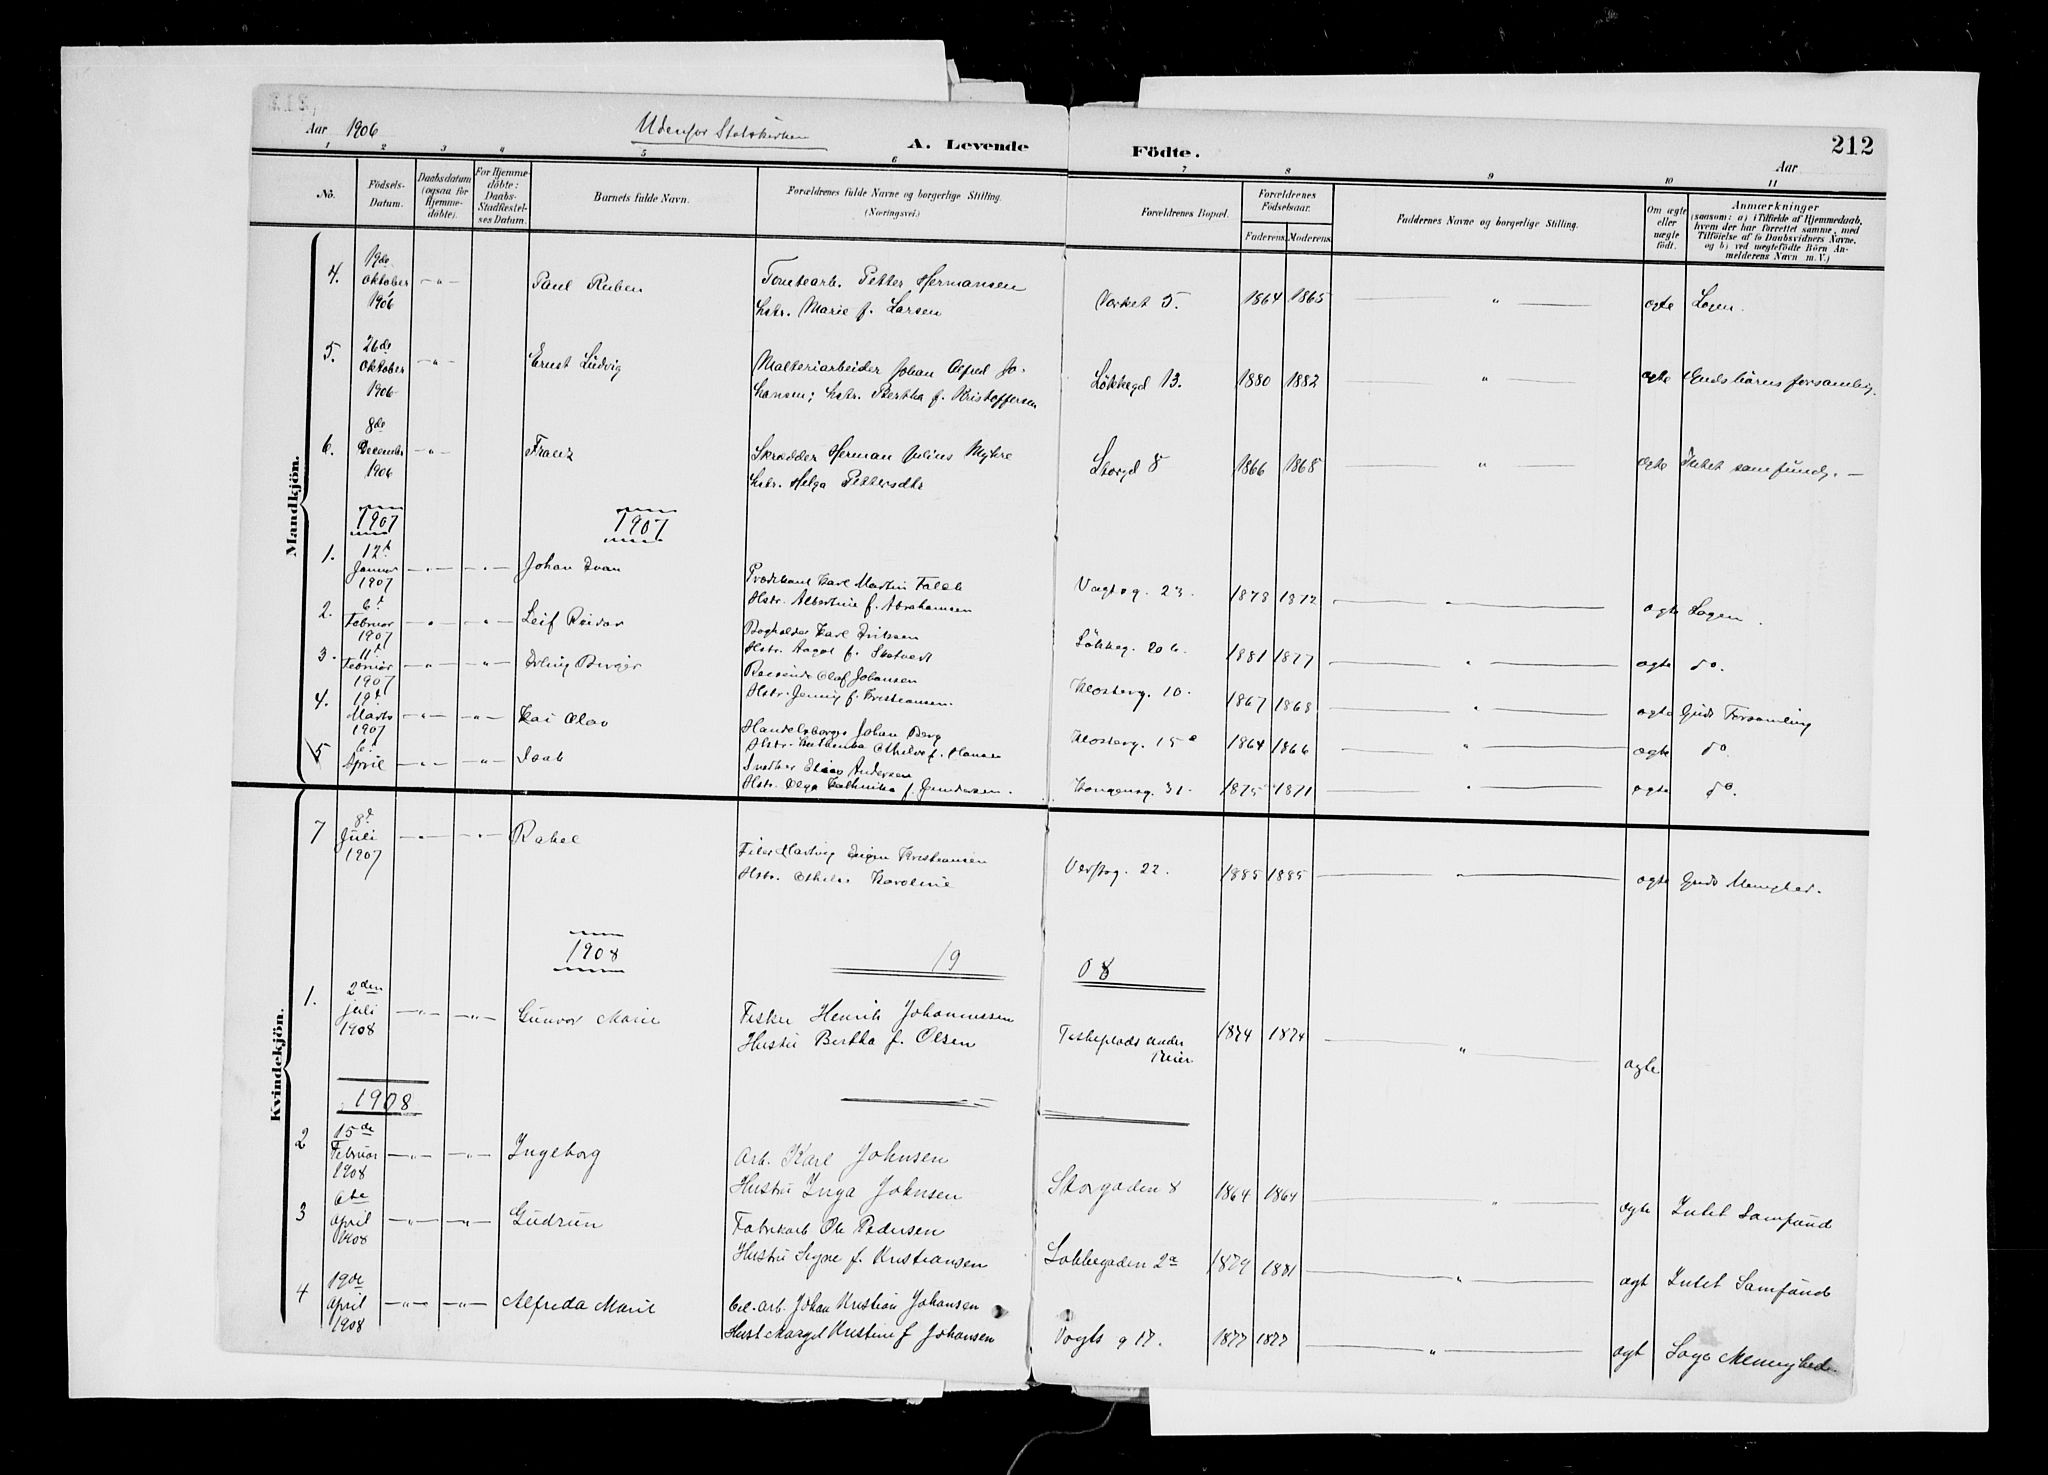 212
Aar 1906 Udenfor Statskirken A. Levende Födte. Aar
1 2 3 4 5 6 7 8 9 10 11
No. Födsels-Datum. Daabsdatum (ogsaa for Hjemmedöbte). For Hjemmedöbte: Daabs-Stadfæstelses Datum. Barnets fulde Navn. Forældrenes fulde Navne og borgerlige Stilling. (Næringsvei.) Forældrenes Bopæl. Forældrenes Födselsaar. Faderens. Moderens. Faddernes Navne og borgerlige Stilling. Om ægte eller uægte födt. Anmærkninger (saasom: a) i Tilfælde af Hjemmedaab, hvem der har forrettet samme, med Tilföielse af to Daabsvidners Navne, og b) ved uægtefödte Börn Anmelderens Navn m. V.)
Mandkjön.
4. 19de Oktober 1906 -"- Paul Ruben Tomtearb. Petter Hermansen
Hstr. Marie f. LarsenVærket 5. 1864 1865 " ægte Lagen.
5. 26de Oktober 1906 -"- Ernst Ludvig Malteriarbeider Johan Alfred Jo-
hansen; Hstr. Bertha f. Kristoffersen Lökkegd 13. 1880 1882 " ægte
6. 8de December 1906 -"- Franz Skrædder Herman Julius Myhre
Hstr. Helga Pettersdtr Storgd 8 1866 1868 " ægte Intet samfund. —
1907 1907
1. 12te Januar 1907 -"- -"- Johan Ivan Prædikant Karl Martin Falch
Hstr. Albertine f. Abrahamsen Vogtsg. 23. 1878 1872 " ægte Lagen.
2. 6t Februar 1907 " " Leif Reidar Bogholder Karl Eriksen
Hstr. Aagot f. Lökkeg. 20 b. 1881 1877 " ægte do.
3. 11t Februar 1907 -"- -"- Erling Birger Reisende Olaf Johansen
Hstr. Jenny f. Kristiansen. Klosterg. 10. 1867 1868 " ægte Guds Forsamling
4. 19d Marts 1907 -"- -"- Kai Olav Handelsborger Johan Berg
Hstr. Othelie f. Hansen Klosterg. 15 a 1864 1866 " ægte do.
5 6t April -"- -"- Isak Snedker Andersen
Hstr. Olga f. Gundersen. Kongensg. 31. 1875 1871 " ægte do.
Kvindekjön.
7 8d Juli 1907 -"- -"- Rakel Filer Hartvig Kristiansen
Hstr. Othelie Karoline Verftsg. 22. 1885 1885 " ægte Guds Menighed.
1908 19 08
1. 2den juli 1908 -"- -"- Gunvor Marie Fisker Henrik Johannessen
Hustru Bertha f. Olsen Fiskeplads under 1874 1874 " ægte
1908
2 15de Februar 1908 -"- -"- Ingeborg Arb. Karl Johnsen
Hustru Inga Johnsen Storgaden 8 1864 1864 " ægte Intet Samfund
3 6te April 1908 -"- -"- Gudrun Fabrikarb Ole Pedersen
Hustru Signe f. Kristiansen Løkkegaden 2a 1879 1881 " ægt Intet Samfund
4 19de April 1908 -"- -"- Alfreda Marie Cel. arb. Johan Kristian Johansen
Hust Margit Kristine f Johansen Vogts g 17. 1877 1877 " ægt Menighed.